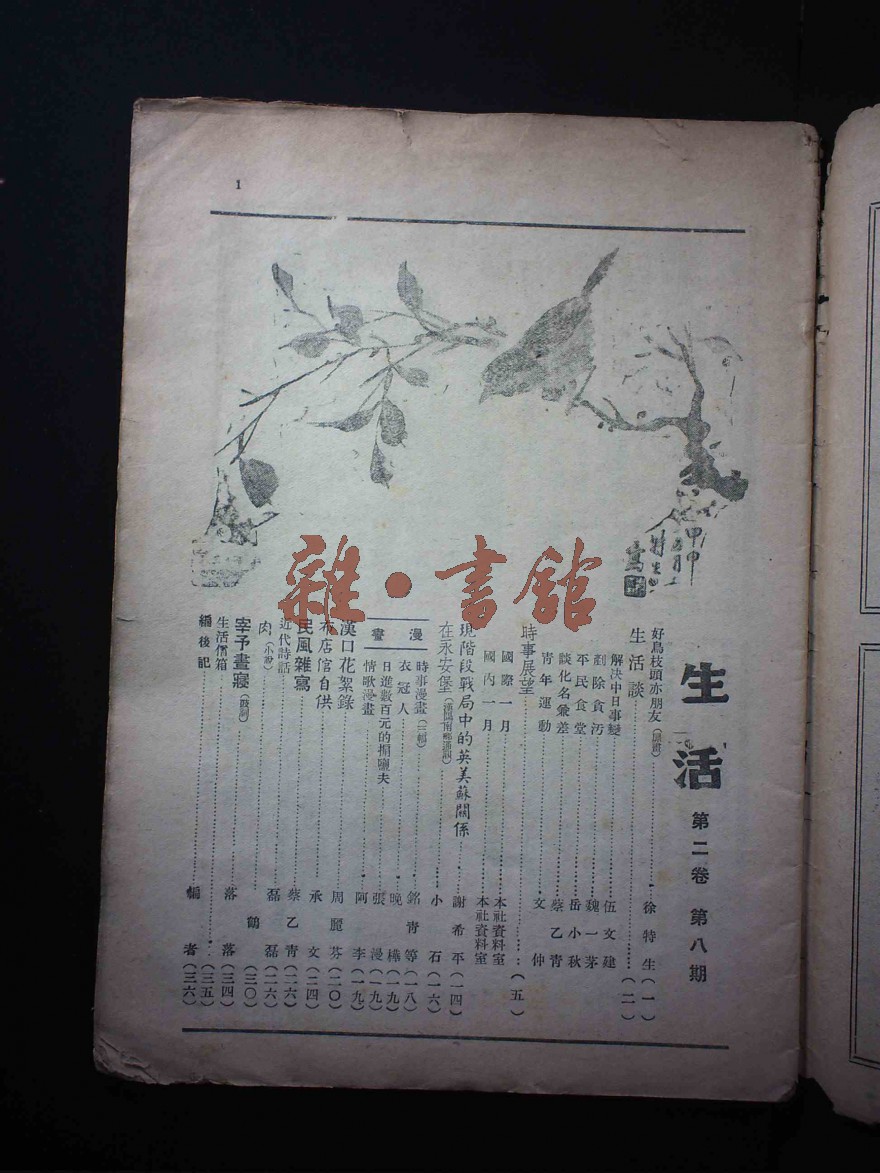 1
甲申
寫
雜·書館
生活
第二卷 第八期
好鳥枝頭亦朋友 徐特生(一)
生活談 (二)
解決中日事變 伍文建
剷除貪污 魏一茅
平民食堂 岳小秋
談化名兼差 蔡乙青
青年運動 文仲
時事展望 (五)
國際一月 本社資料室
國內一月 本社資料室
現階段戰局中的英美蘇關係 謝希平(一四)
在永安堡 小石(一六)
漫畫
時事漫畫(三幅) 銘青等(一八)
衣冠人 晚樺(一九)
日進數百元的搬鹽夫 張漫(一九)
情歌漫畫 阿李(一九)
漢口花絮錄 周麗芬(二〇)
布店倌自供 承文(二四)
民風雜寫 蔡乙青(二六)
近代詩話 磊磊(二六)
肉(小說) 鶴(三〇)
宰予晝寢 落落(三四)
生活信箱 (三五)
編後記 編者(三六)